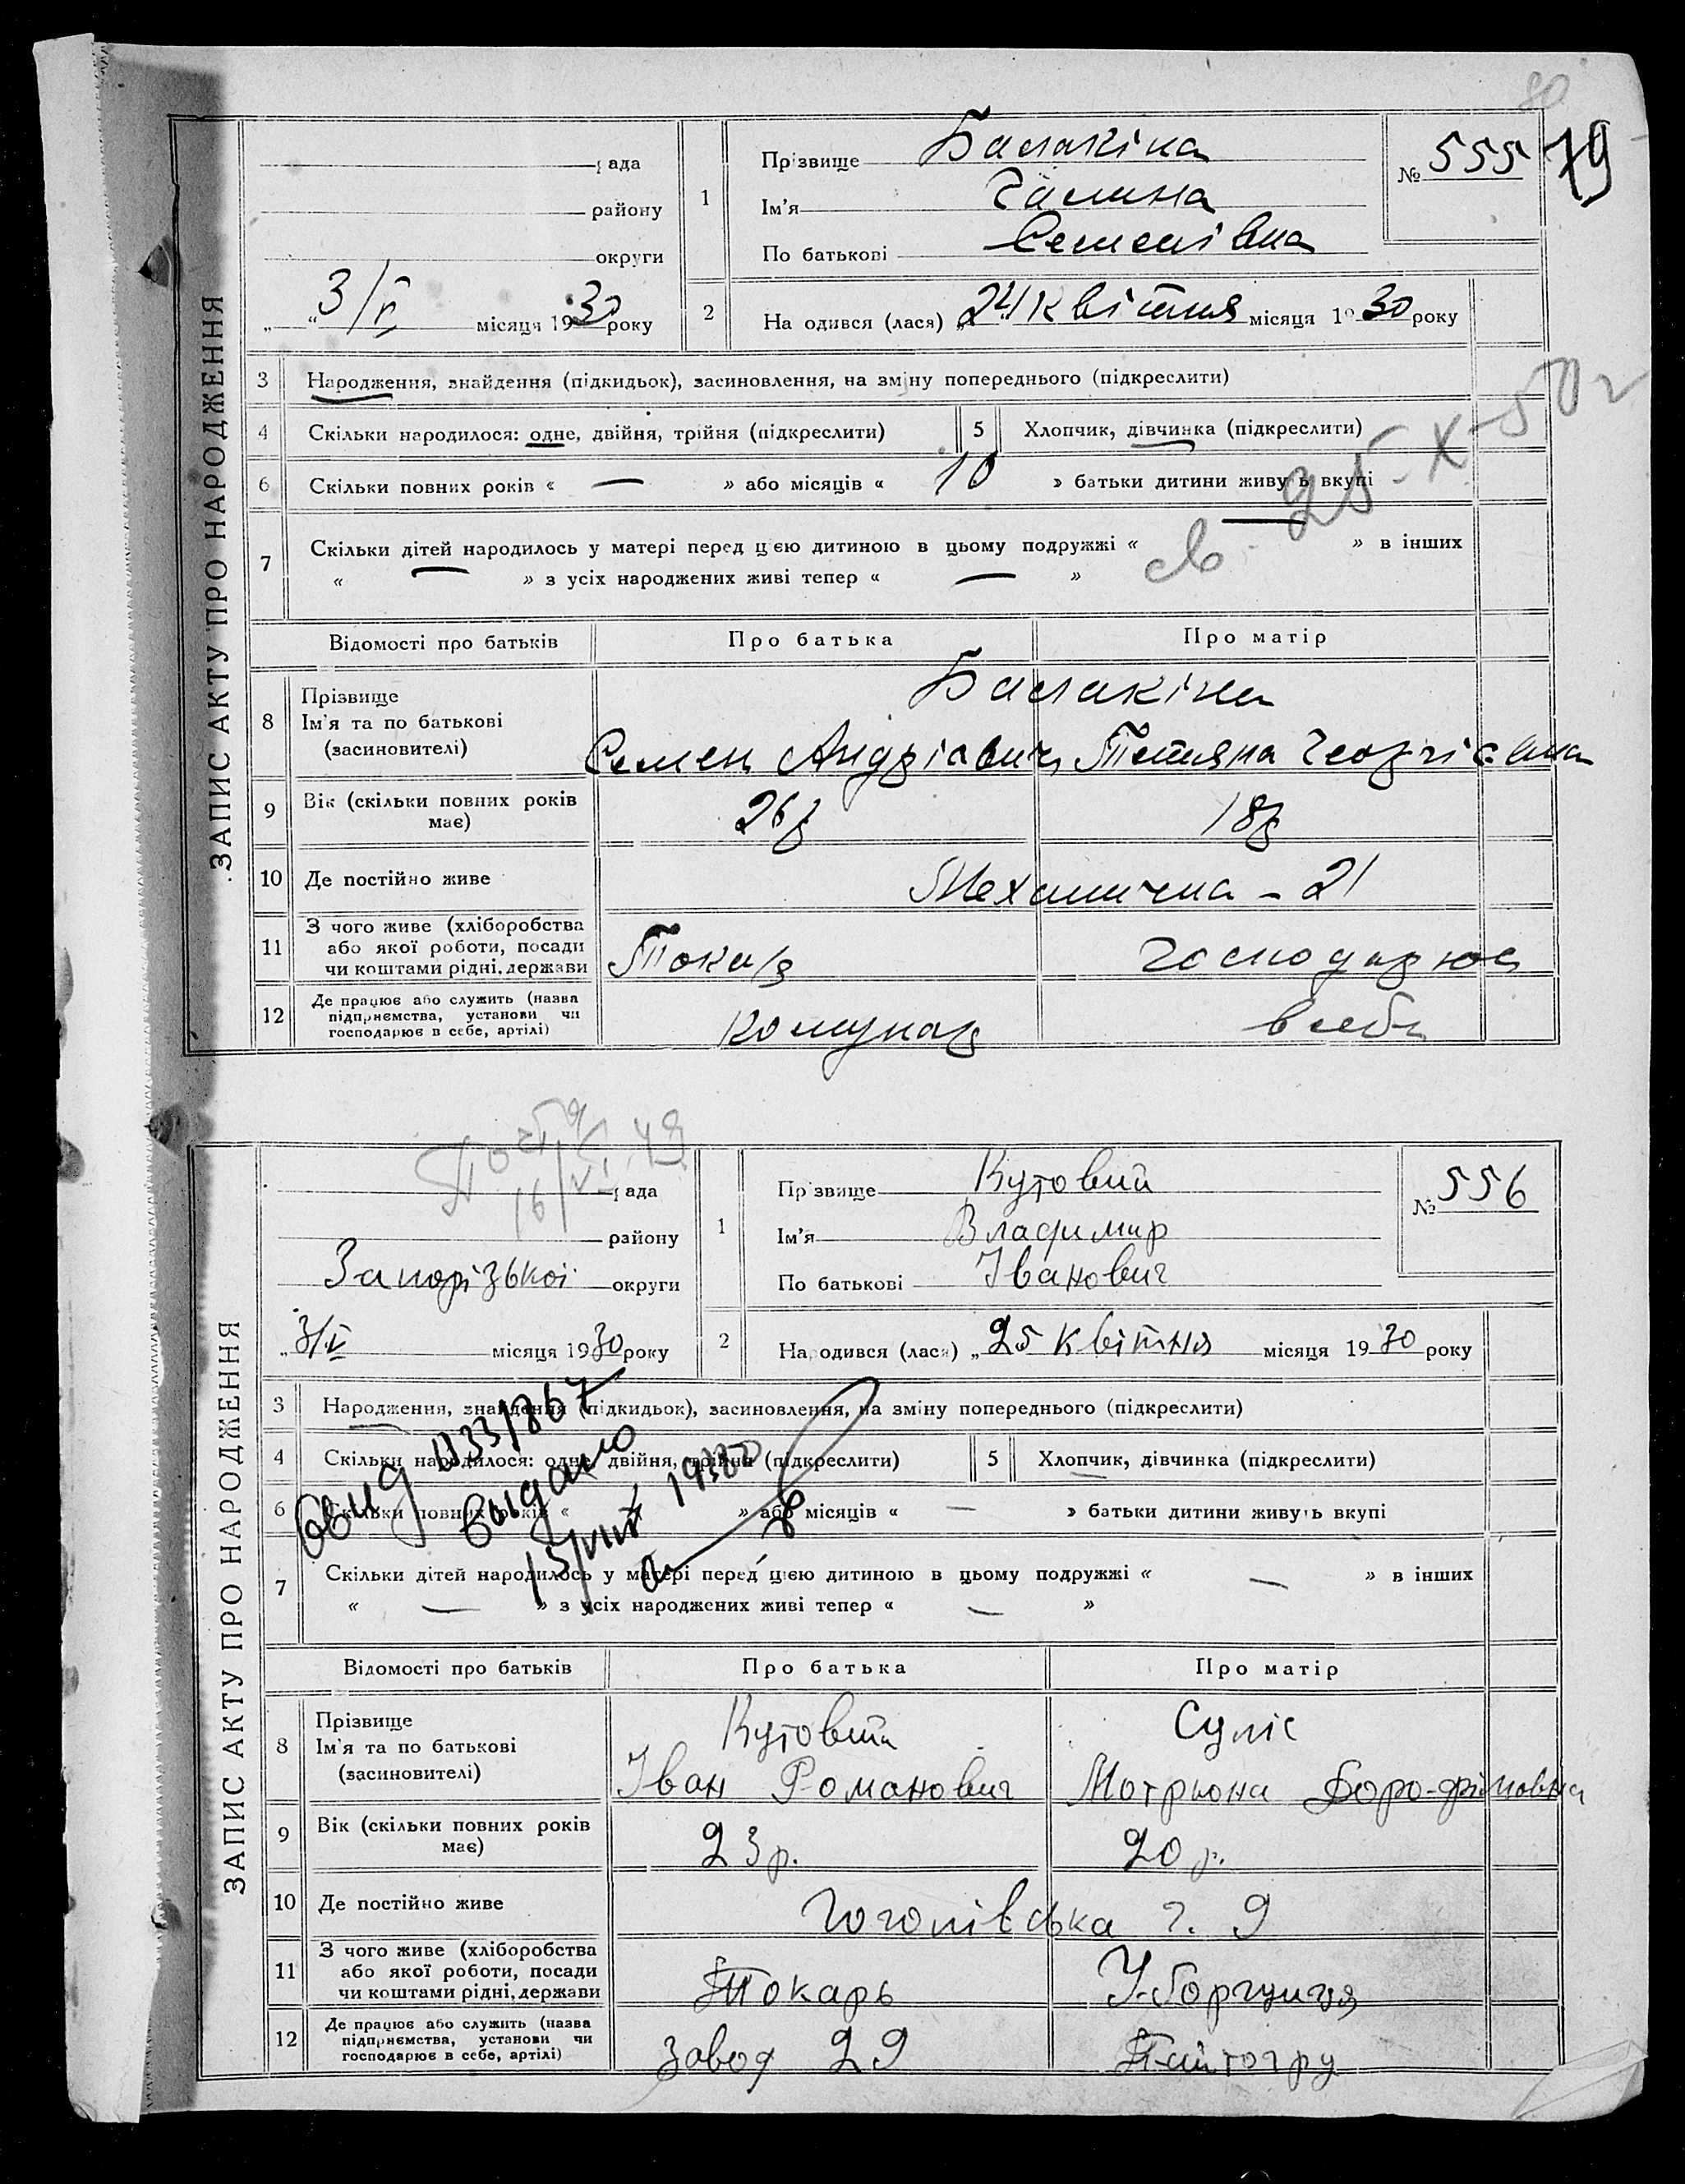 80
79
ЗАПИС АКТУ ПРО НАРОДЖЕННЯ
рада
району
округи
„ “ 3/V місяця 1930 року
1
Прізвище Балакіна
Ім'я Галина
По батькові Семенівна
№ 555
2
Народився (лася) „24 квітня місяця 1930 року
3 Народження, знайдення (підкидьок), засиновлення, на зміну попереднього (підкреслити)
4 Скільки народилося: одне, двійня, трійня (підкреслити) 5 Хлопчик, дівчинка (підкреслити)
6 Скільки повних років « — » або місяців « 10 » батьки дитини живуть вкупі
св. 25-X-50 г
7 Скільки дітей народилось у матері перед цією дитиною в цьому подружжі « — » в інших
« — » з усіх народжених живі тепер « — »
Відомості про батьків Про батька Про матір
8 Прізвище
Ім'я та по батькові
(засновителі)
Балакіна
Семен Андріавич Тетяна Георгієвна
9 Вік (скільки повних років має) 26р 18р
10 Де постійно живе Механична – 21
11 З чого живе (хліборобства
або якої роботи, посади
чи коштами рідні, держави
Токар господарює
12 Де працює або служить (назва
підприємства, установи чи
господарює в себе, артілі)
Комунар в себе
ЗАПИС АКТУ ПРО НАРОДЖЕННЯ
16/VI 48
рада
району
Запорізької округи
„3/V місяця 1930 року
1
Прізвище Кутовий
Ім'я Владимир
По батькові Іванович
№ 556
2
Народився (лася) „25 квітня місяця 1930 року
3 Народження, знайдення (підкидьок), засиновлення, на зміну попереднього (підкреслити)
4 Скільки народилося: одне, двійня, трійня (підкреслити) 5 Хлопчик, дівчинка (підкреслити)
6 Скільки повних років « » або місяців « — » батьки дитини живуть вкупі
7 Скільки дітей народилось у матері перед цією дитиною в цьому подружжі « — » в інших
« — » з усіх народжених живі тепер « — »
выдано
Відомості про батьків Про батька Про матір
8 Прізвище
Ім'я та по батькові
(засиновителі)
Кутовий Суліс
Іван Романович Мотрьона
9 Вік (скільки повних років має) 23 р. 20 р.
10 Де постійно живе Гоголівська ч. 9
11 З чого живе (хліборобства
або якої роботи, посади
чи коштами рідні, держави
Токарь Уборчниця
12 Де працює або служить (назва
підприємства, установи чи
господарює в себе, артілі)
завод 29